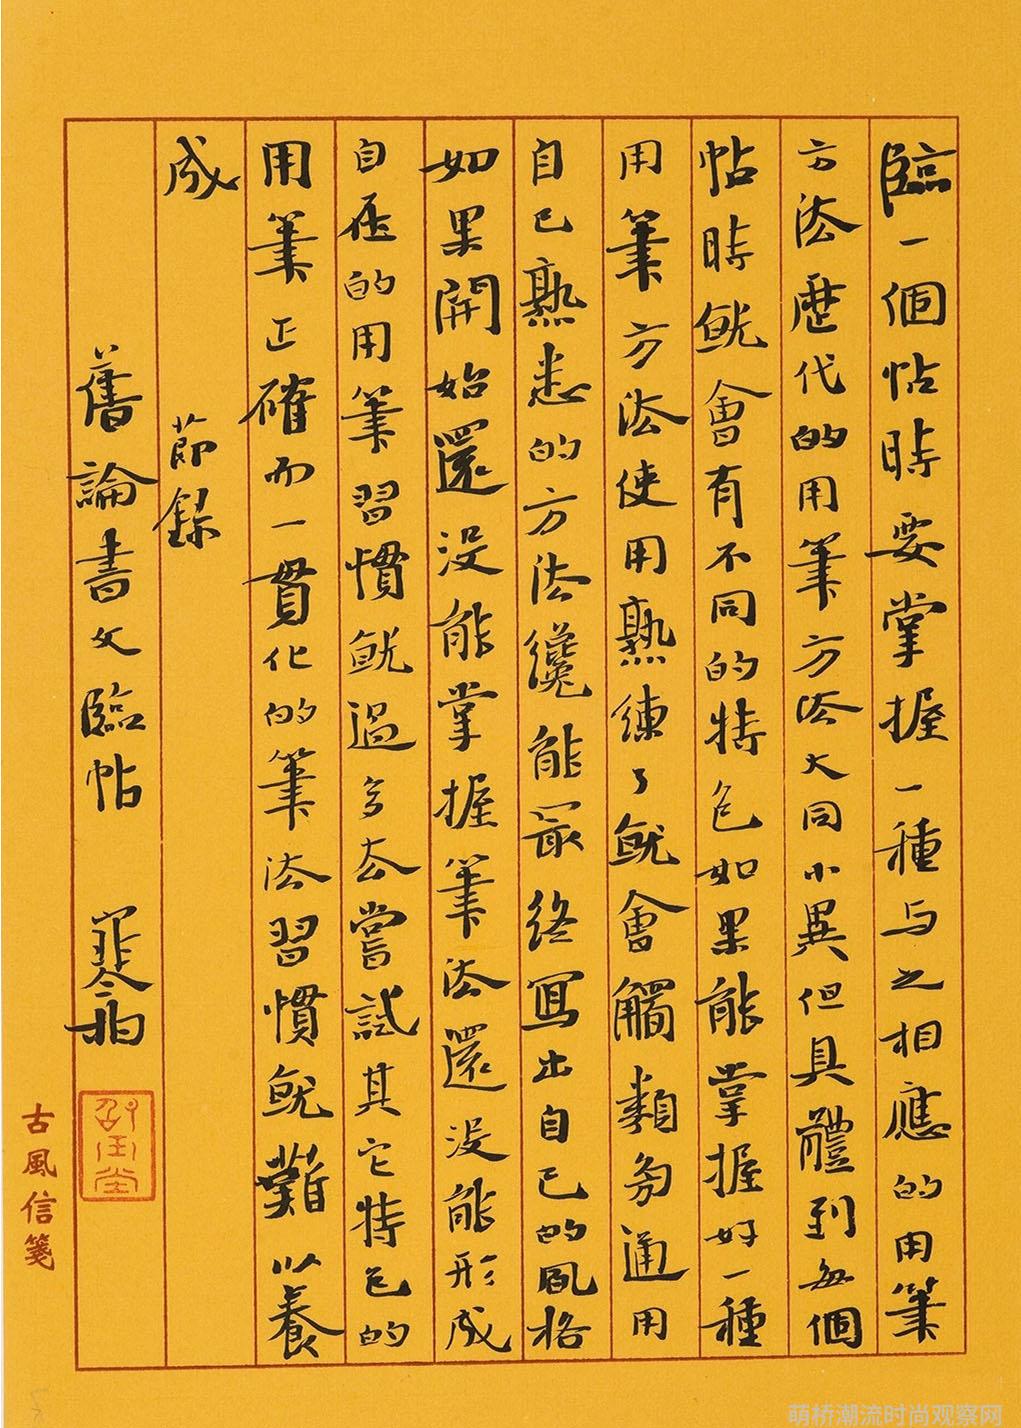 臨一個帖時要掌握一種与之相應的用筆
方法歷代的用筆方法大同小異但具體到每個
帖時就會有不同的特色如果能掌握好一種
用筆方法使用熟練了就會觸類旁通用
自己熟悉的方法纔能最終寫出自己的風格
如果開始還没能掌握筆法還没能形成
自在的用筆習慣就過多去嘗試其它特色的
用筆正確而一貫化的筆法習慣就難以養
成 節錄
舊論書文臨帖
古風信箋
萌桥潮流时尚观察网